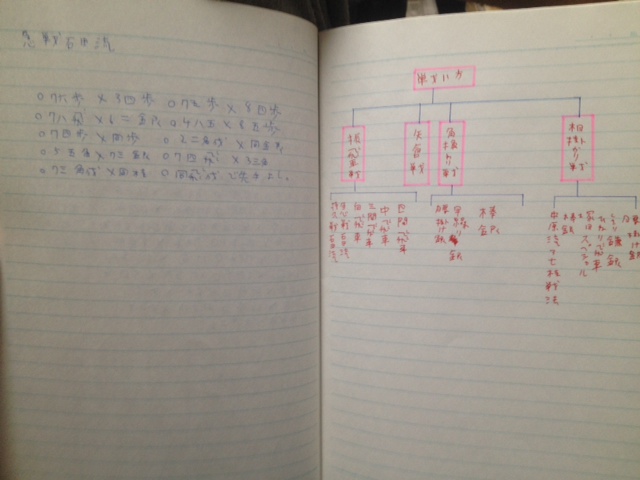 急戦石田流
○7六歩×3四歩 ○7五歩×8四歩
○7八飛×6二銀 ○4八玉×8五歩
○7四歩×同歩 ○2二角成×同銀
○5五角×7三銀 ○7四飛×3三角
○7三角成×同桂 ○同飛成で先手よし。
戦い方
相掛かり戦
角換り戦
矢倉戦
振飛車戦
腰掛け銀
飛車
スペシャル
棒銀
棒銀
早繰り銀
腰掛け銀
四間飛車
中飛車
三間飛車
向飛車
石田流
急戦石田流